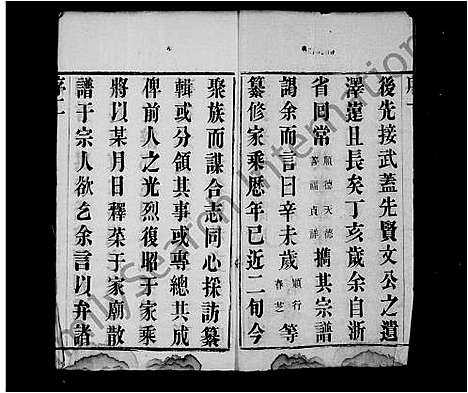 後先接武蓋先賢文公之遺
澤遠且長矣丁亥歲余自浙
省回常順德天德善福貞祥攜其宗譜
謁余而言曰辛未歲順行春芝等
纂修家乘歷年已近二旬今
聚族而謀合志同心採訪纂
輯或分領其事或專總其成
俾前人之光烈復昭于家乘
將以某月日釋菜于家廟散
譜于宗人欲乞余言以弁諸
序二